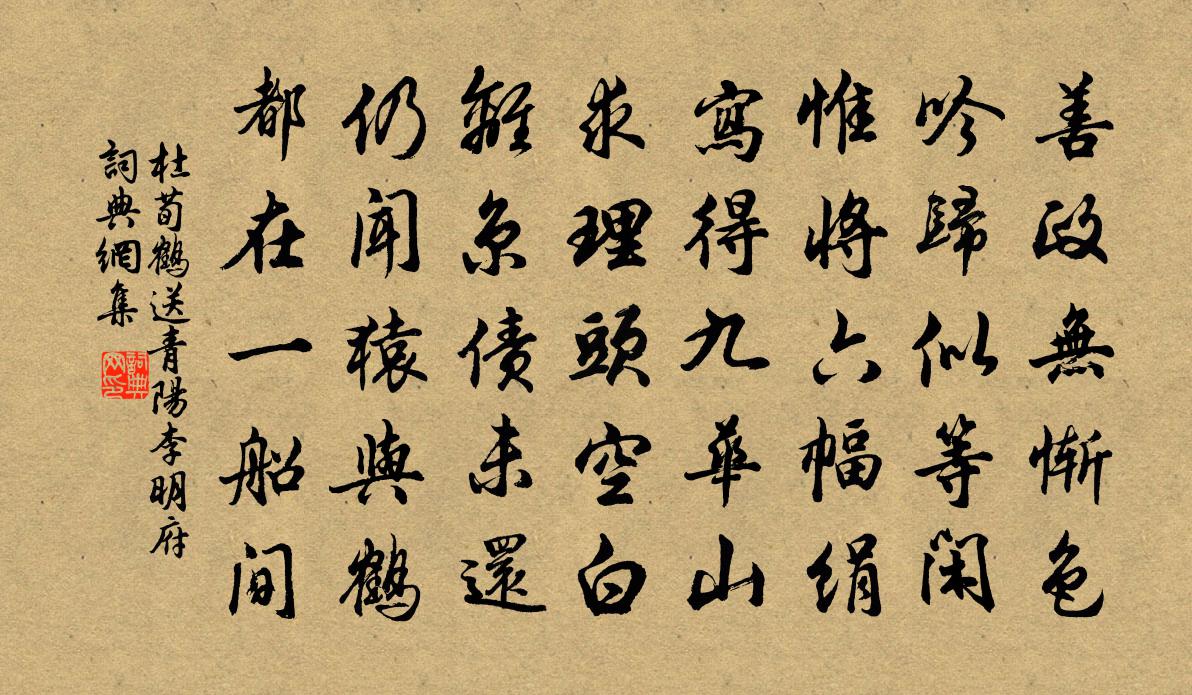 善政無慚色
吟歸似等閑
惟將六幅絹
寫得九華山
求理頭空白
離京債未還
仍聞猿與鶴
都在一船間
杜荀鶴送青陽李明府
詞典網集
詞典网印